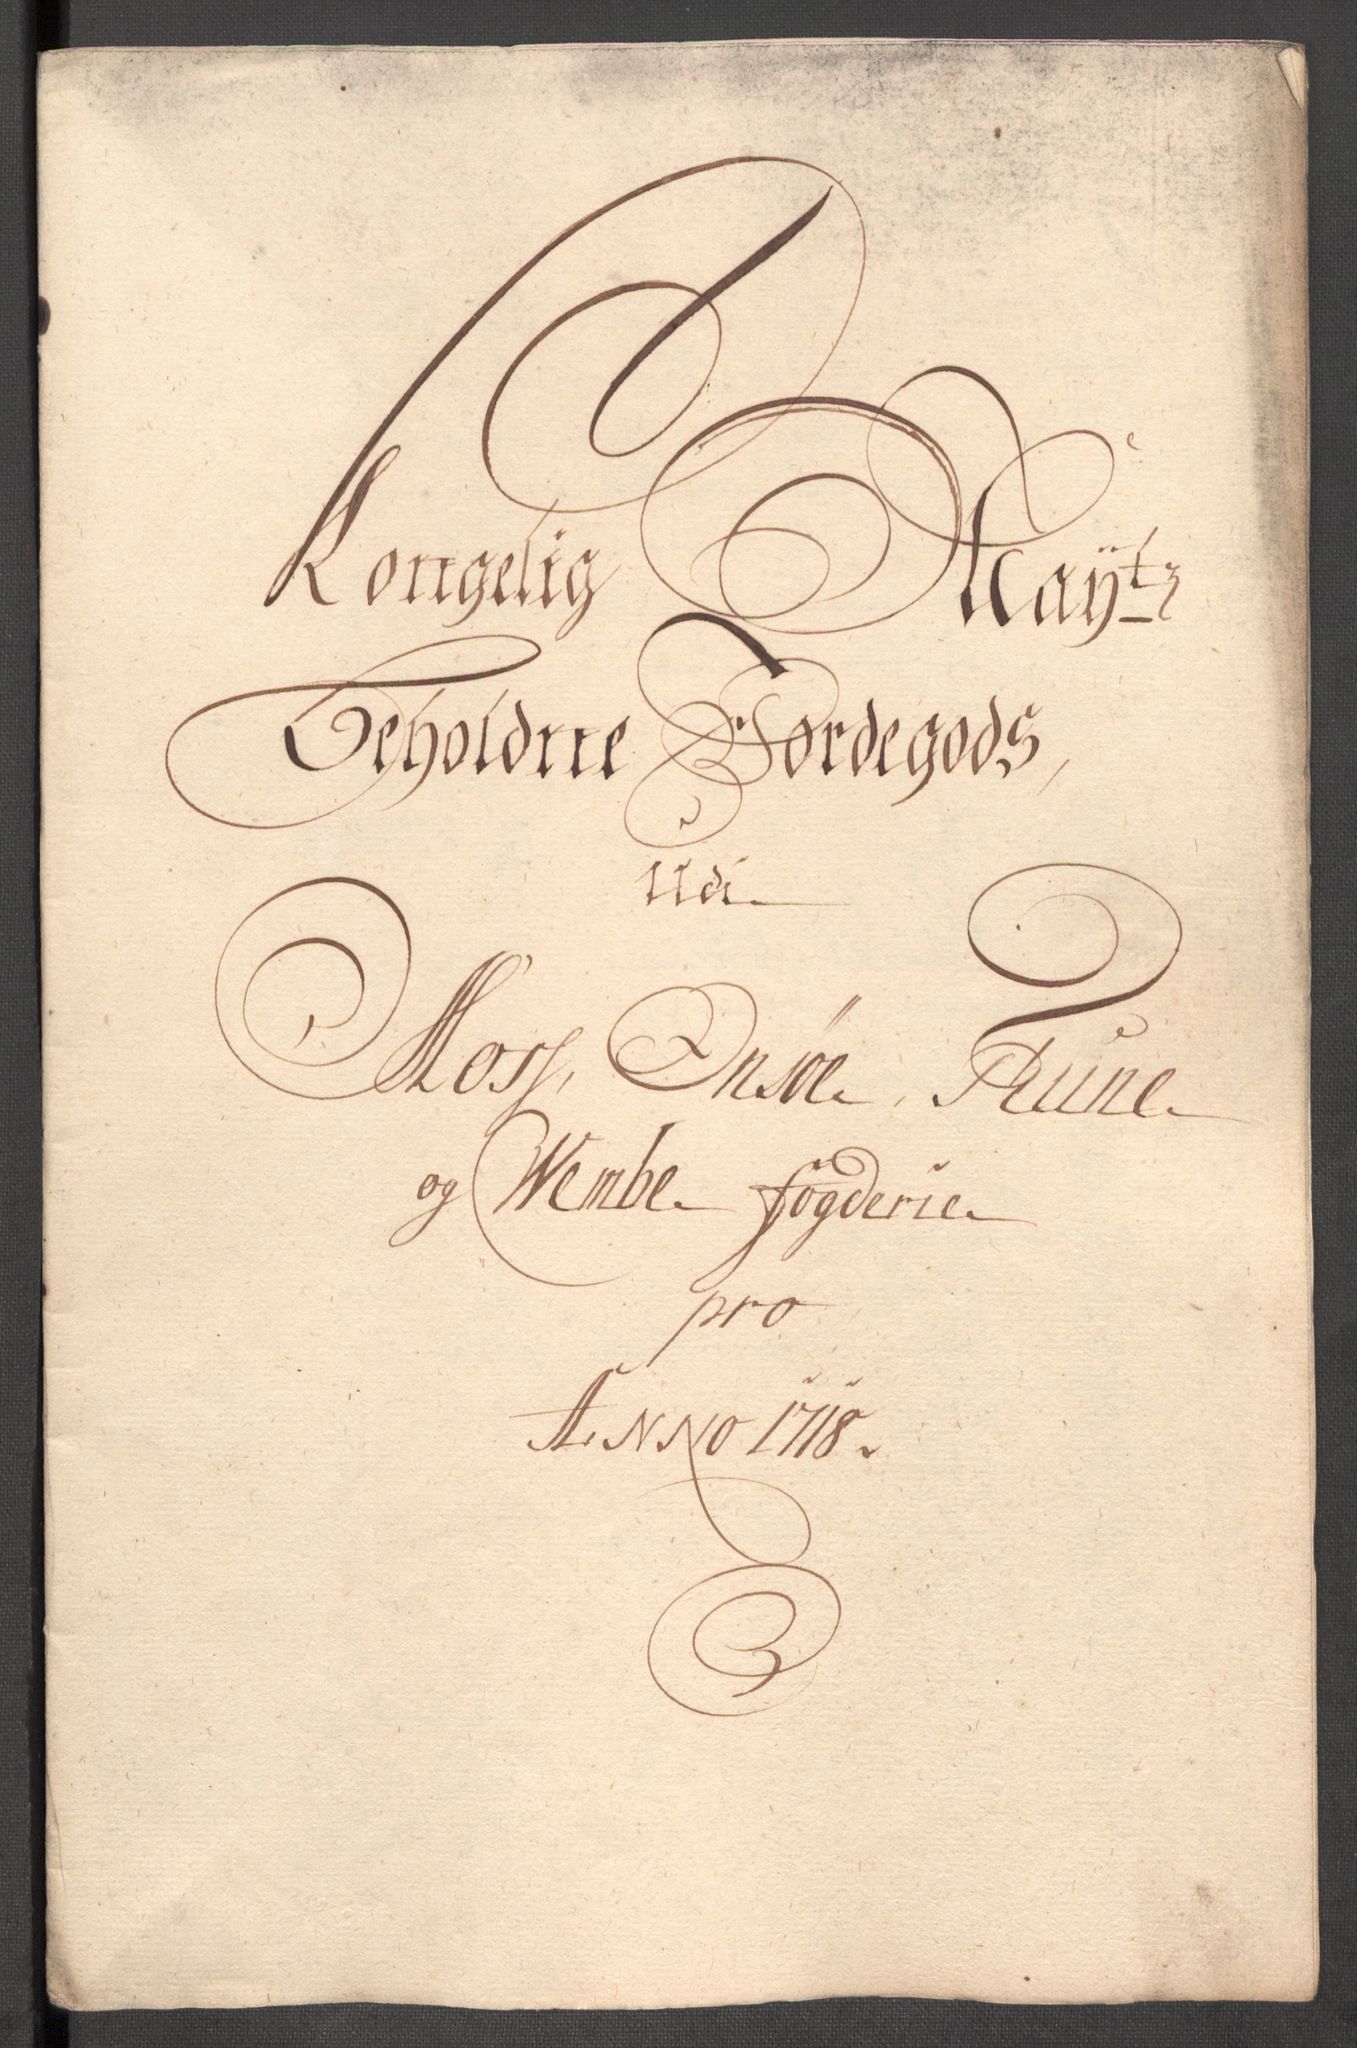 Kongelig Mayts
Beholdne Jordegods,
udi
Moss, Onsöe, Thune
og Wembe fogderie
pro
ANNO 1718.